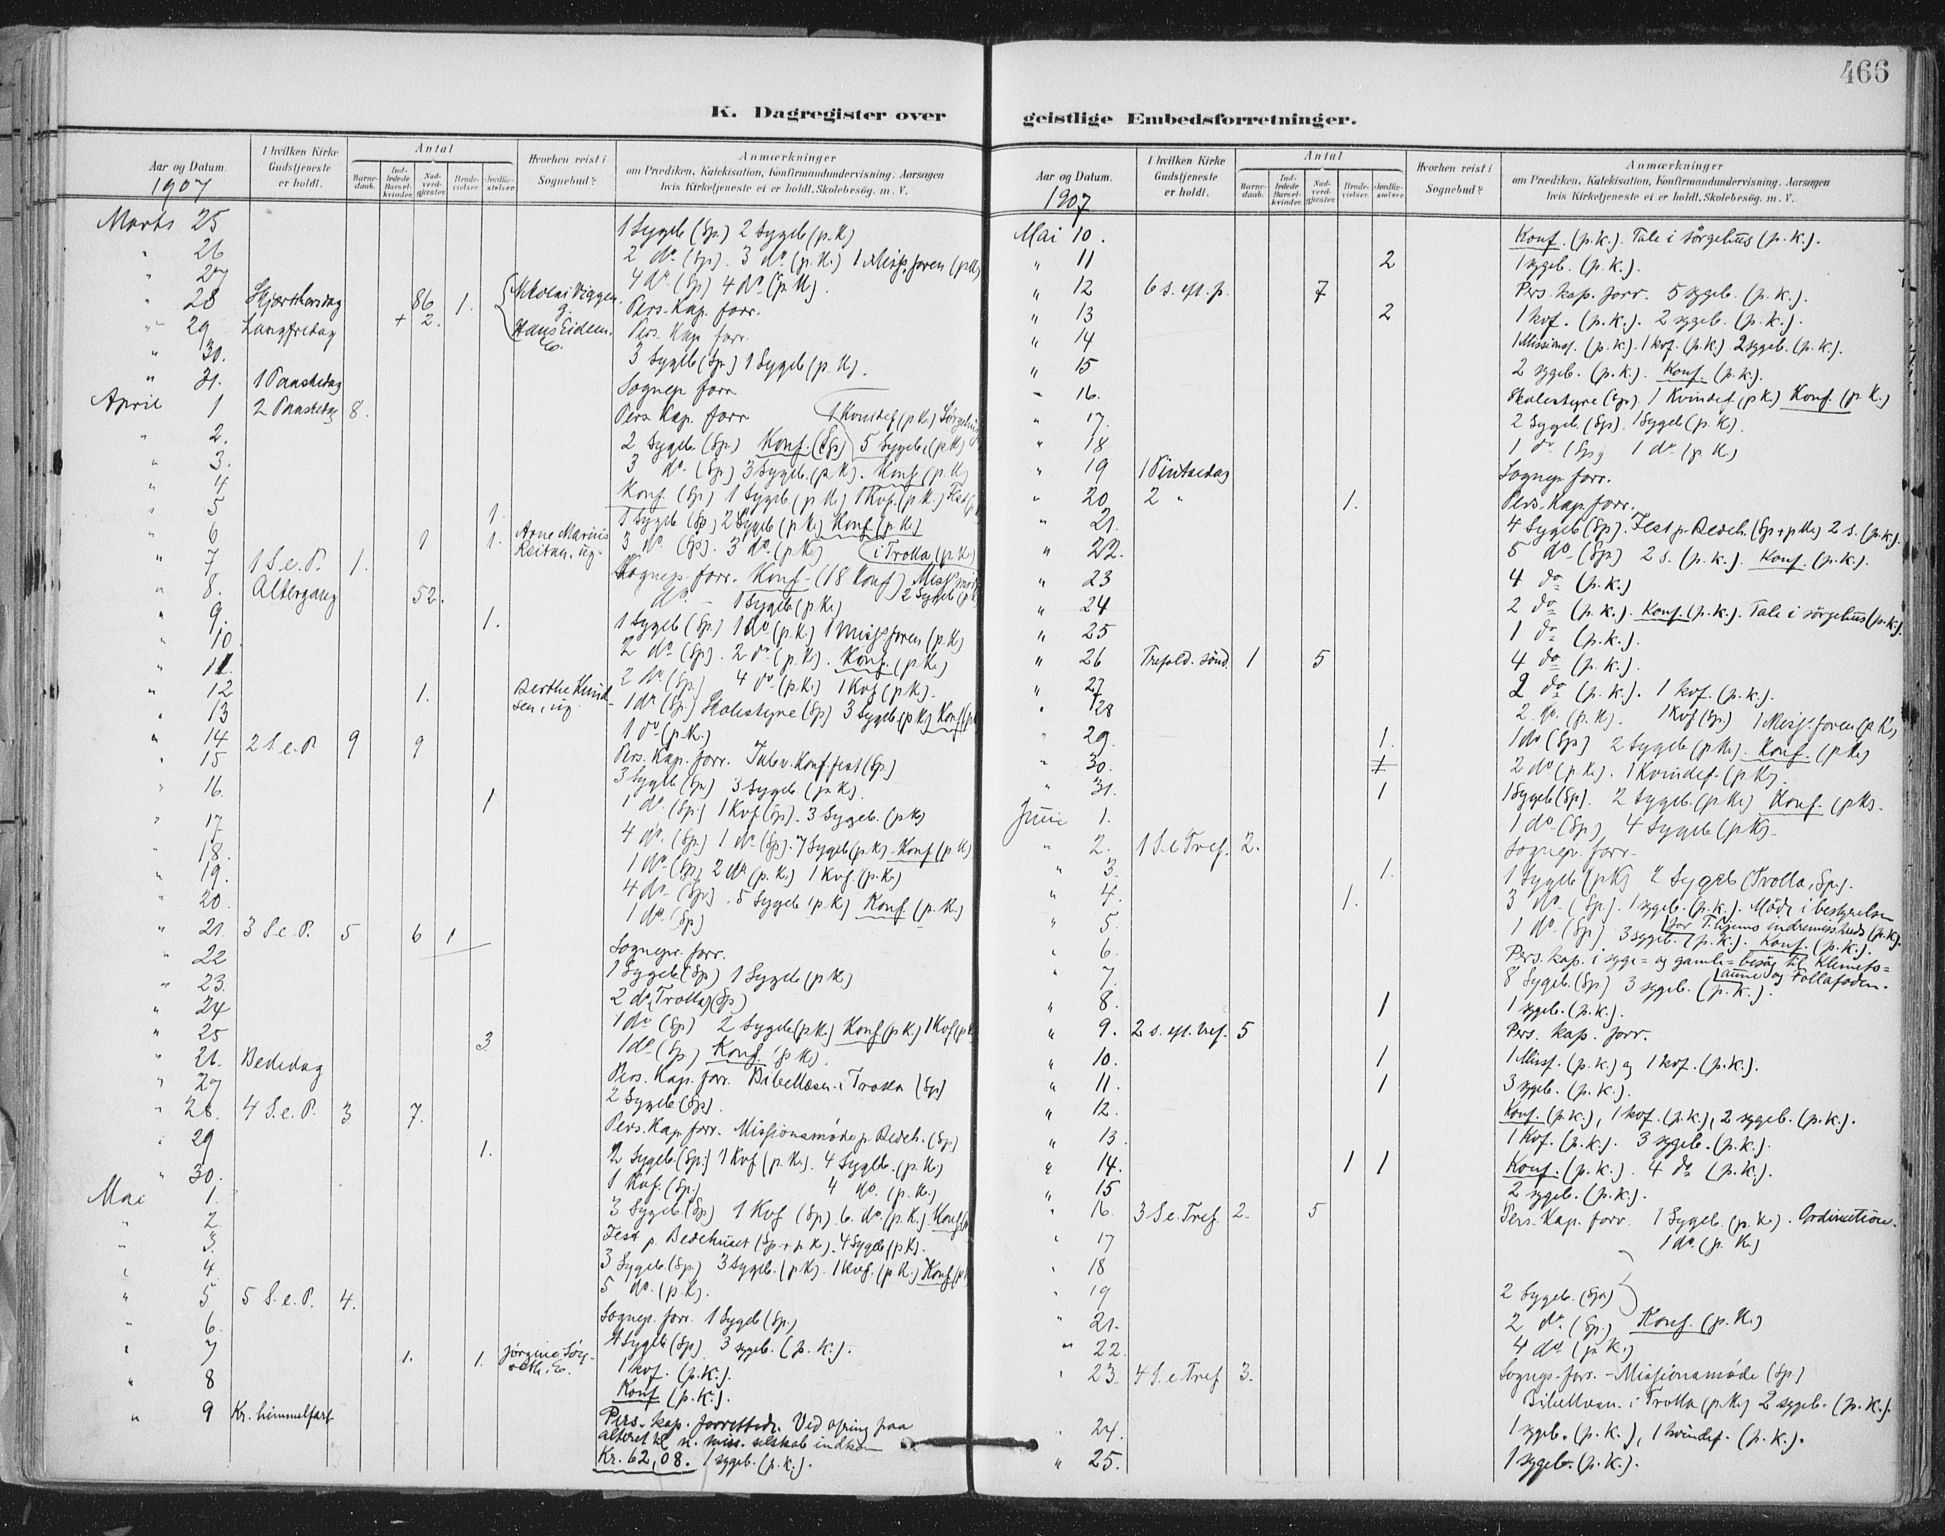 466
K. Dagregister over geistlige Embedsforretninger.
Aar og Datum. I hvilken Kirke Gudstjeneste er holdt. Antal Barnedaab. Indledede Barselkvinder. Nadverdgjester. Brudevielser. Jordfæstelser. Hvorhen reist i Sognebud? Anmærkninger om Prædiken, Katekisation, Konfirmandundervisning, Aarsagen hvis Kirketjeneste ei er holdt, Skolebesøg. m. V.
1907
Marts 25 1 Sygeb (Sp.) 2 Sygeb (p.K)
" 26 2 do. (Sp). 3 do. (p.K.) 1 Miss.foren (p.K)
" 27 4 do (Sp) 4 do. (p.K).
" 28 Skjærthorsdag 86 1. Nikolai Viggen, g. Pers. Kap. forr.
" 29 Langfredag + 2. Hans Eidem, E. Pers. Kap forr.
" 30. 3 Sygeb (Sp.) 1 Sygeb (p.K).
" 31. 1 Paaskedag Sognepr forr
April 1 2 Paaskedag 8. Pers. Kap. forr 1 Kvindef (p.K.)
" 2. 2 Sygeb (Sp.) Konf. (Sp) 5 Sygeb. (p.K)
" 3. 3 do. (Sp) 3 Sygeb. (p.K). Konf (p.K)
" 4 Konf. (Sp) 1 Sygeb (p.K) 1 Kvf. (p.K.)
" 5 1. 1 Sygeb (Sp.) 2 Sygeb (p.K.) Konf (p.K.)
" 6 1 1. Arne Marius Reitan, ug. 3 do. (Sp). 3 do. (p.K) i Trolla (p.K.)
" 7 1 S. e. P. 1. Sognepr. forr. Konf. (18 Konf)
" 8. Altergang 52. do. 1 Sygeb (p.K.) 2 Sygeb (p.K)
" 9. 1. 1 Sygeb (Sp) 1 do (p.K.) 1 Miss.foren (p.K)
" 10 2 do. (Sp). 2 do (p.K). Konf. (p.K.)
" 11. 2 do. (Sp.) 4 do. (p.K.) 1 Kvf (p.K).
" 12 1. Berthe Knudsen, ug. 1 do (Sp.) Skolestyre (Sp) 3 Sygeb (p.K) Konf (p.K
" 13 1 do (p.K.)
" 14 2 S. e. P 9 9 Pers. Kap. forr. Tale v. Konf.fest (Sp.)
" 15 3 Sygeb (Sp) 3 Sygeb (p.K).
" 16. 1 1 do. (Sp.) 1 Kvf (Sp). 3 Sygeb. (p.K)
" 17 4 do. (Sp.) 1 do. (Sp). 7 Sygeb (p.K). Konf (p.K)
" 18. 1 do. (Sp) 2 do (p.K.) 1 Kvf. (p.K.)
" 19. 4 do. (Sp.) 5 Sygeb (p.K) Konf (p.K.)
" 20 1 do. (Sp)
" 21. 3 S. e. P. 5 6 1 Sognepr. forr.
" 22 1 Sygeb (Sp) 1 Sygeb (p.K)
" 23. 2 do. (Trolla) (Sp)
" 24 1 do. (Sp) 2 Sygeb (p.K.) Konf (p.K) 1 Kvf (p.K
" 25 3. 1 do. (Sp) Konf. (p.K)
" 26. Bededag Pers. Kap. forr. Bibellæsn. i Trolla (Sp)
" 27 2 Sygeb (Sp).
" 28. 4 S. e. P. 3 7. Pers. Kap forr. Missionsmøde p. Bedeh. (Sp)
" 29 1. 2 Sygeb (Sp.) 1 Kvf (p.K.). 4 Sygeb. (p.K)
" 30. 1 Kvf. (Sp.) 4 do. (p.K.)
Mai 1. 3 Sygeb (Sp) 1 Kvf (Sp). 6. do. (p.K.) Konf
" 2. Fest p. Bedehuset (Sp + p.K). 4 Sygeb (p.K).
" 3. 3 Sygeb (Sp.) 3 Sygeb. (p.K). 1 Kvf. (p.K.) Konf (p.K
" 4 5 do. (p.K).
" 5 5 S. e. P. 4. Sognepr. forr. 1 Sygeb (Sp.)
" 6. 4 Sygeb (Sp) 3 sygeb. (p.K.).
" 7 1. 1. 1 kvf. (p.K.).
" 8 Konf (p.K.).
" 9 Kr. himmelfart Pers. kap. forrettede. Ved ofring paa
alteret til n. miss. selskab indkom
Kr. 62,08. 1 sygeb. (p.K.).
Aar og Datum. I hvilken Kirke Gudstjeneste er holdt. Antal Barnedaab. Indledede Barselkvinder. Nadverdgjester. Brudevielser. Jordfæstelser. Hvorhen reist i Sognebud? Anmærkninger om Prædiken, Katekisation, Konfirmandundervisning, Aarsagen hvis Kirketjeneste ei er holdt, Skolebesøg. m. V.
1907
Mai 10. Konf. (p.K.). Tale i sørgehus (p.K.).
" 11 2 1 sygeb. (p.K.).
" 12 6 s. eft. p. 7 Pers. kap. forr. 5 sygeb. (p.K.).
" 13 2 1 kvf. (p.K.). 2 sygeb. (p.K.).
" 14 1 Missionsf. (p.K.). 1 kvf. (p.K.) 2 sygeb. (p.K.).
" 15 2 sygeb. (p.K.). Konf. (p.K.).
" 16. Skolestyre (Sp). 1 Kvindef. (p.K) Konf. (p.K)
" 17. 2 Sygeb. (Sp). 1 Sygeb (p.K).
" 18 1 do (Sp) 1 do. (p.K)
" 19 1 Pintsedag Sognepr. forr.
" 20 2 " 1. Pers. Kap. forr.
" 21. 4 Sygeb (Sp). Fest p. Bedeh. (Sp + p.K.) 2 s. (p.K).
" 22. 5 do. (Sp) 2 s. (p.K.). Konf. (p.K.).
" 23 4 do (p.K.)
" 24 2 do (p.K.). Konf. (p.K.). Tale i sørgehus (p.K.).
" 25 1 do (p.K.).
" 26 Trefold. sønd. 1 5 4 do (p.K.).
" 27 2 do (p.K.). 1 kvf. (p.K.).
" 28 2 do. (p.K). 1 Kvf (Sp.) 1 Miss.foren (p.K)
" 29. 1. 1 do (Sp) 2 Sygeb (p.K.). Konf. (p.K)
" 30. 2 do (p.K.). 1 Kvindef. (p.K).
" 31. 1 1 Sygeb (Sp). 2 Sygeb. (p.K.) Konf. (p.K).
Juni 1. 1 do (Sp) 4 Sygeb (p.K).
" 2. 1 S. e Tref. 2. Sognepr. forr.
" 3. 1. 1 Sygeb (p.K) 2 Sygeb (Trolla, Sp.).
" 4. 1. 3 do. (Sp). 1 sygeb. (p.K.). Møde i bestyrelsen
" 5. 1 do. (Sp) 3 sygeb. (p.K.). Konf. (p.K.).
" 6. Pers. kap. i syge= og gamle=besøg til Klemets=
" 7. 8 Sygeb. (Sp) 3 sygeb. (p.K.). aune og Follafoden.
" 8. 1 1 sygeb. (p.K.).
" 9. 2 s. eft. tref. 5 Pers. kap. forr.
" 10. 1 1 Missf. (p.K.) og 1 kvf. (p.K.).
" 11. 1 3 sygeb. (p.K.).
" 12. Konf. (p.K.), 1 kvf. (p.K.), 2 sygeb. (p.K.).
" 13. 1 Kvf. (p.K.). 3 sygeb. (p.K.).
" 14. 1 1 Konf. (p.K.). 4 do (p.K.).
" 15 2 sygeb. (p.K.).
" 16. 3 S e. Tref. 2. 5 Pers. Kap. forr. 1 Sygeb. (p.K). Ordination.
" 17 1 do. (p.K)
" 18
" 19 2 Sygeb. (Sp.)
" 21. 2 do. (Sp) Konf. (p.K.)
" 22. 4 do (p.K.)
" 23. 4 S. e Tref 3. Sognepr. forr. – Missionsmøde (Sp)
Bibellæsn. i Trolla (p.K.) 2 sygeb. (p.K.).
" 24. 1 sygeb. (p.K.), 1 kvindef. (p.K.).
" 25. 1 sygeb. (p.K.).